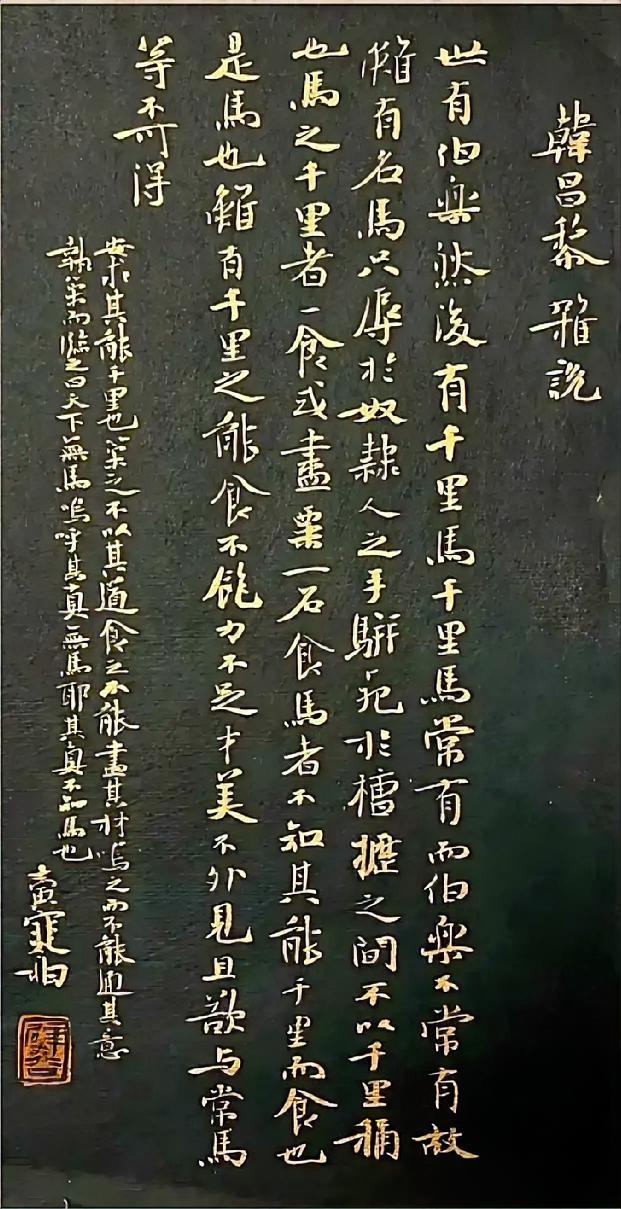 韓昌黎雜說
世有伯樂然後有千里馬千里馬常有而伯樂不常有故
雖有名馬只辱於奴隸人之手駢死於槽櫪之間不以千里稱
也馬之千里者一食或盡粟一石食馬者不知其能千里而食也
是馬也雖有千里之能食不飽力不足才美不外見且欲与常馬
等不可得
安求其能千里也策之不以其道食之不能盡其材鳴之而不能通其意
執策而臨之曰天下無馬嗚呼其真無馬耶其真不知馬也